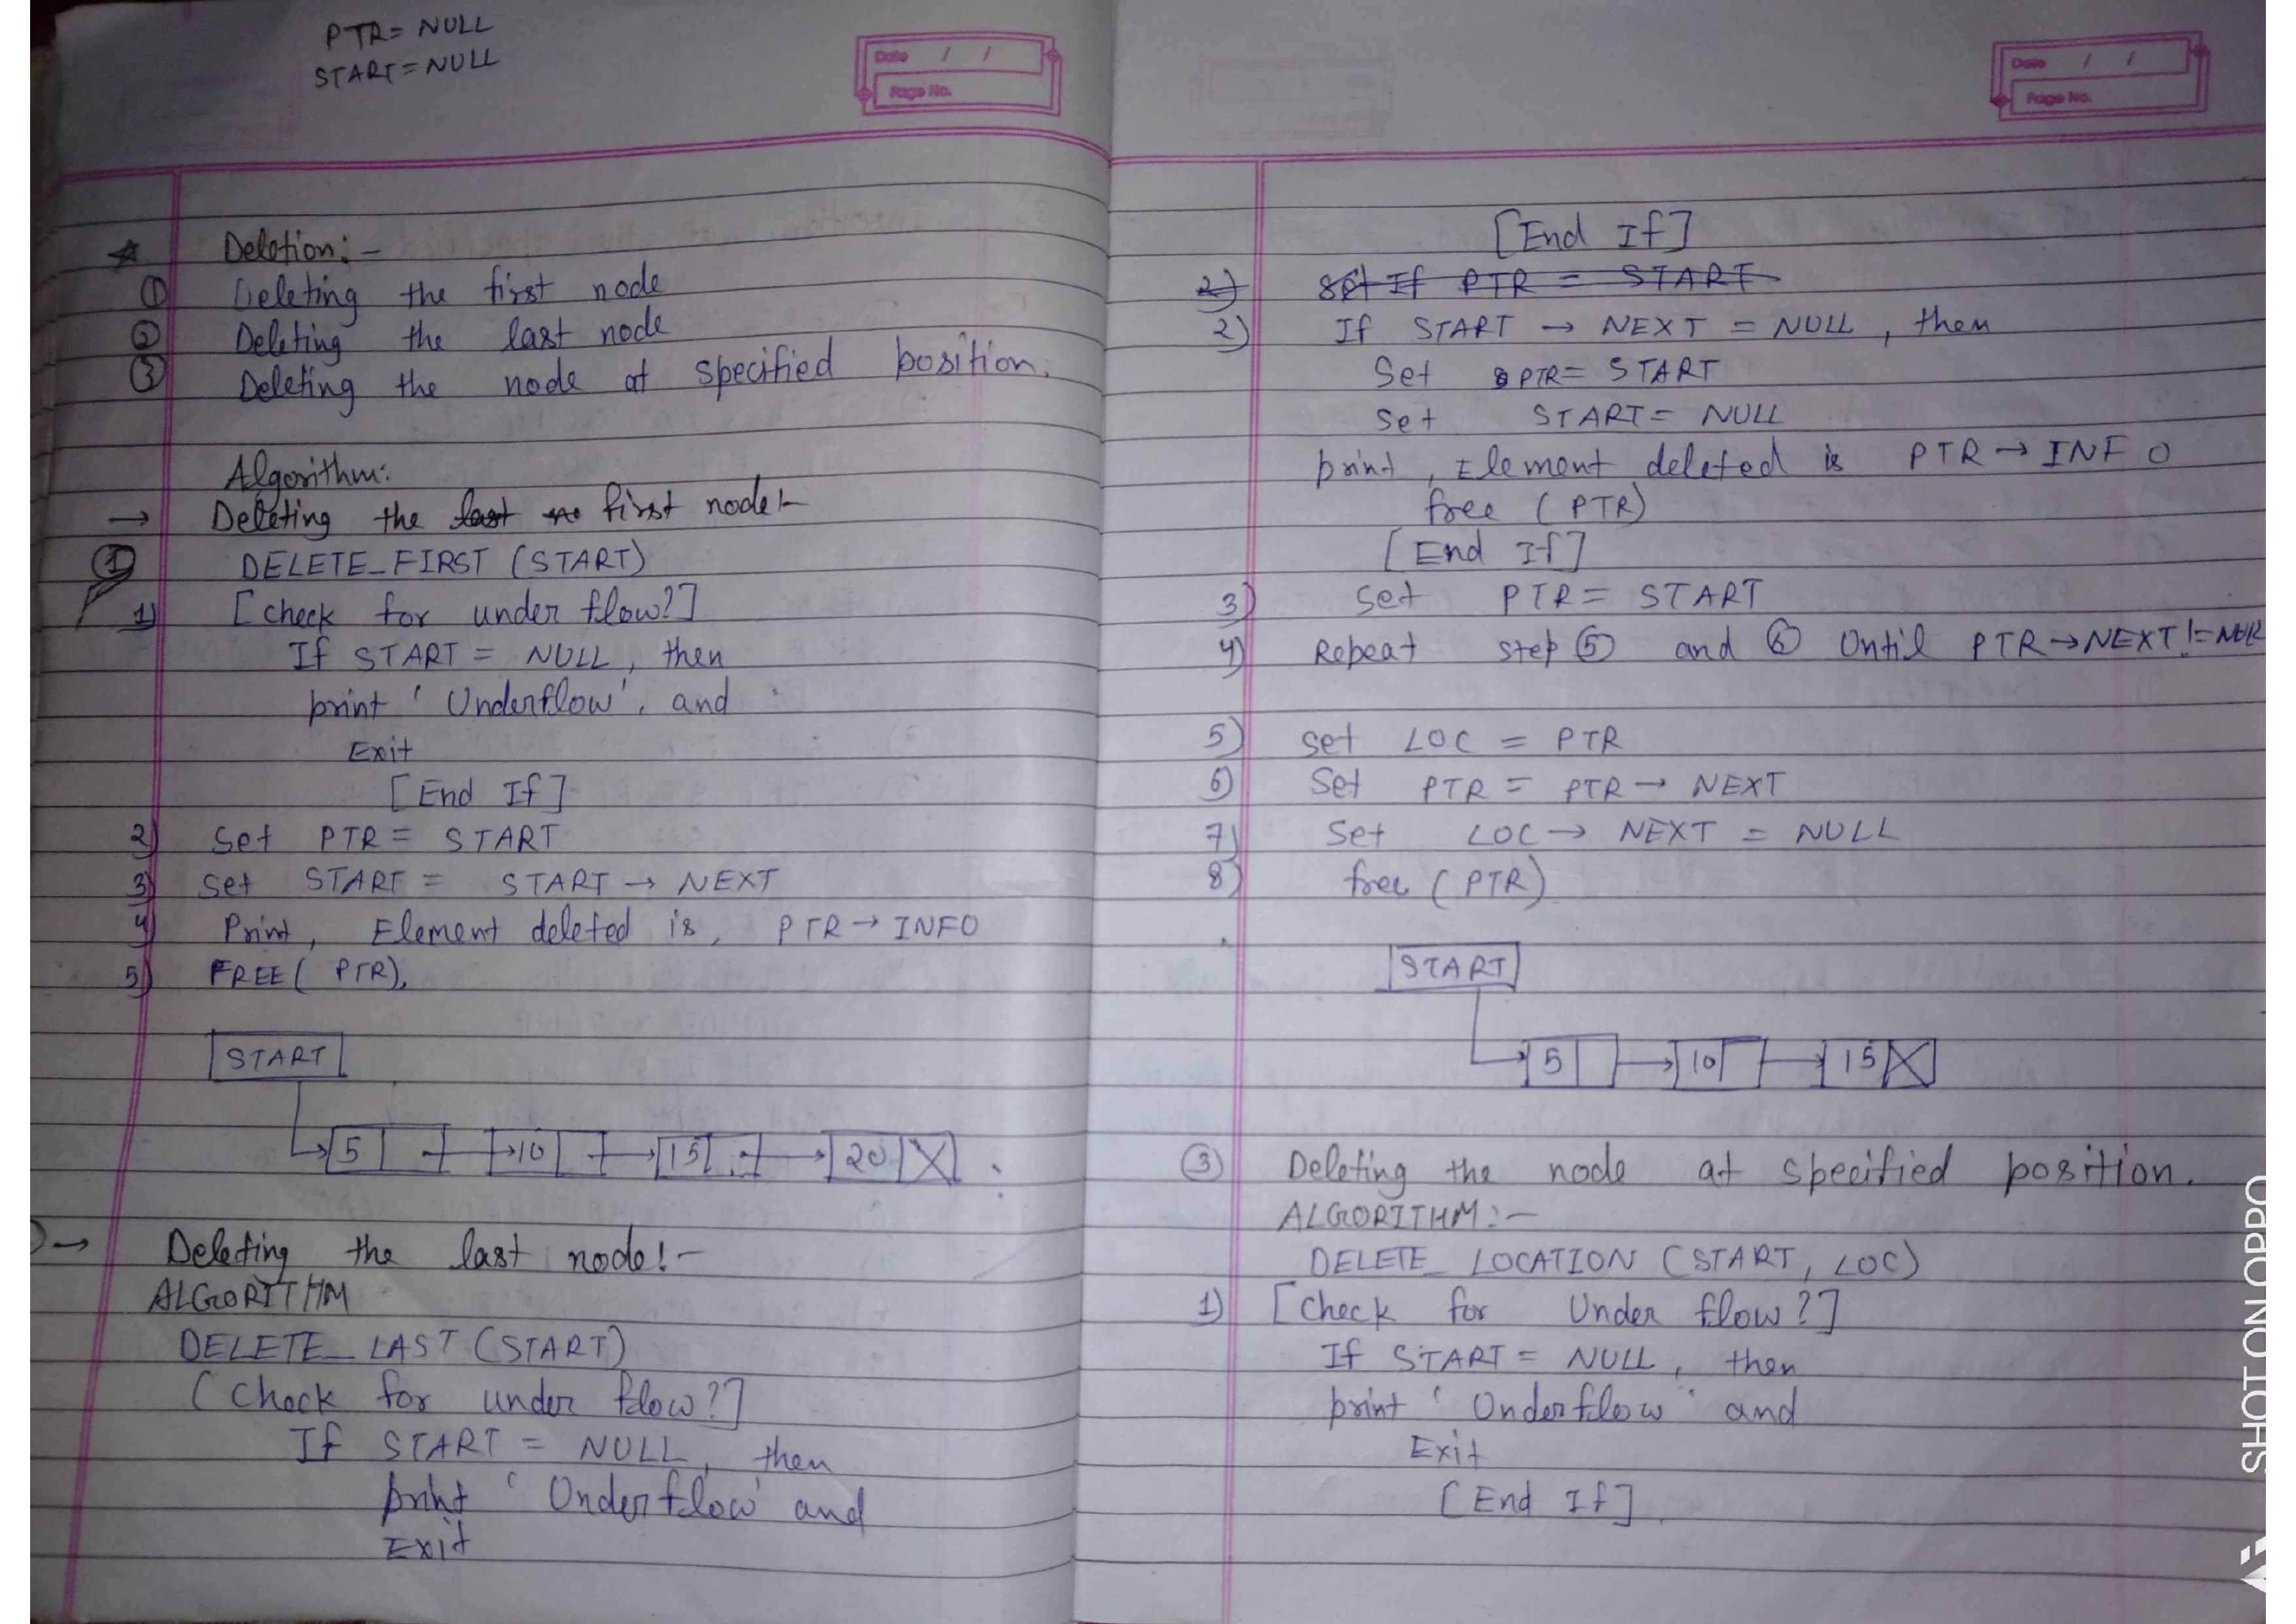 PTR= NULL
START=NULL
Date / /
Page No.
Deletion:-
① Deleting the first node
② Deleting the last node
③ Deleting the node at specified position.
Algorithm:
→ Deleting the last no first node:-
① DELETE_FIRST (START)
1) [check for under flow?]
If START = NULL, then
print 'Underflow', and
Exit
[End If]
2) Set PTR = START
3) Set START = START → NEXT
4) Print, Element deleted is, PTR → INFO
5) FREE( PTR),
START
5 10 15 20 X
→ Deleting the last node:-
ALGORITHM
DELETE_LAST (START)
[check for under flow?]
If START = NULL, then
print 'Underflow' and
Exit
Date / /
Page No.
[End If]
2) Set If PTR = START
2) If START → NEXT = NULL, then
Set PTR= START
Set START= NULL
print, Element deleted is PTR → INFO
free (PTR)
[End If]
3) Set PTR= START
4) Repeat step ⑤ and ⑥ Until PTR→NEXT !=
5) set LOC = PTR
6) Set PTR = PTR → NEXT
7) Set LOC → NEXT = NULL
8) free (PTR)
START
5 10 15 X
③ Deleting the node at specified position.
ALGORITHM:-
DELETE_LOCATION (START, LOC)
1) [check for Under flow?]
If START = NULL, then
print 'Underflow' and
Exit
[End If]
SHOT ON OPPO